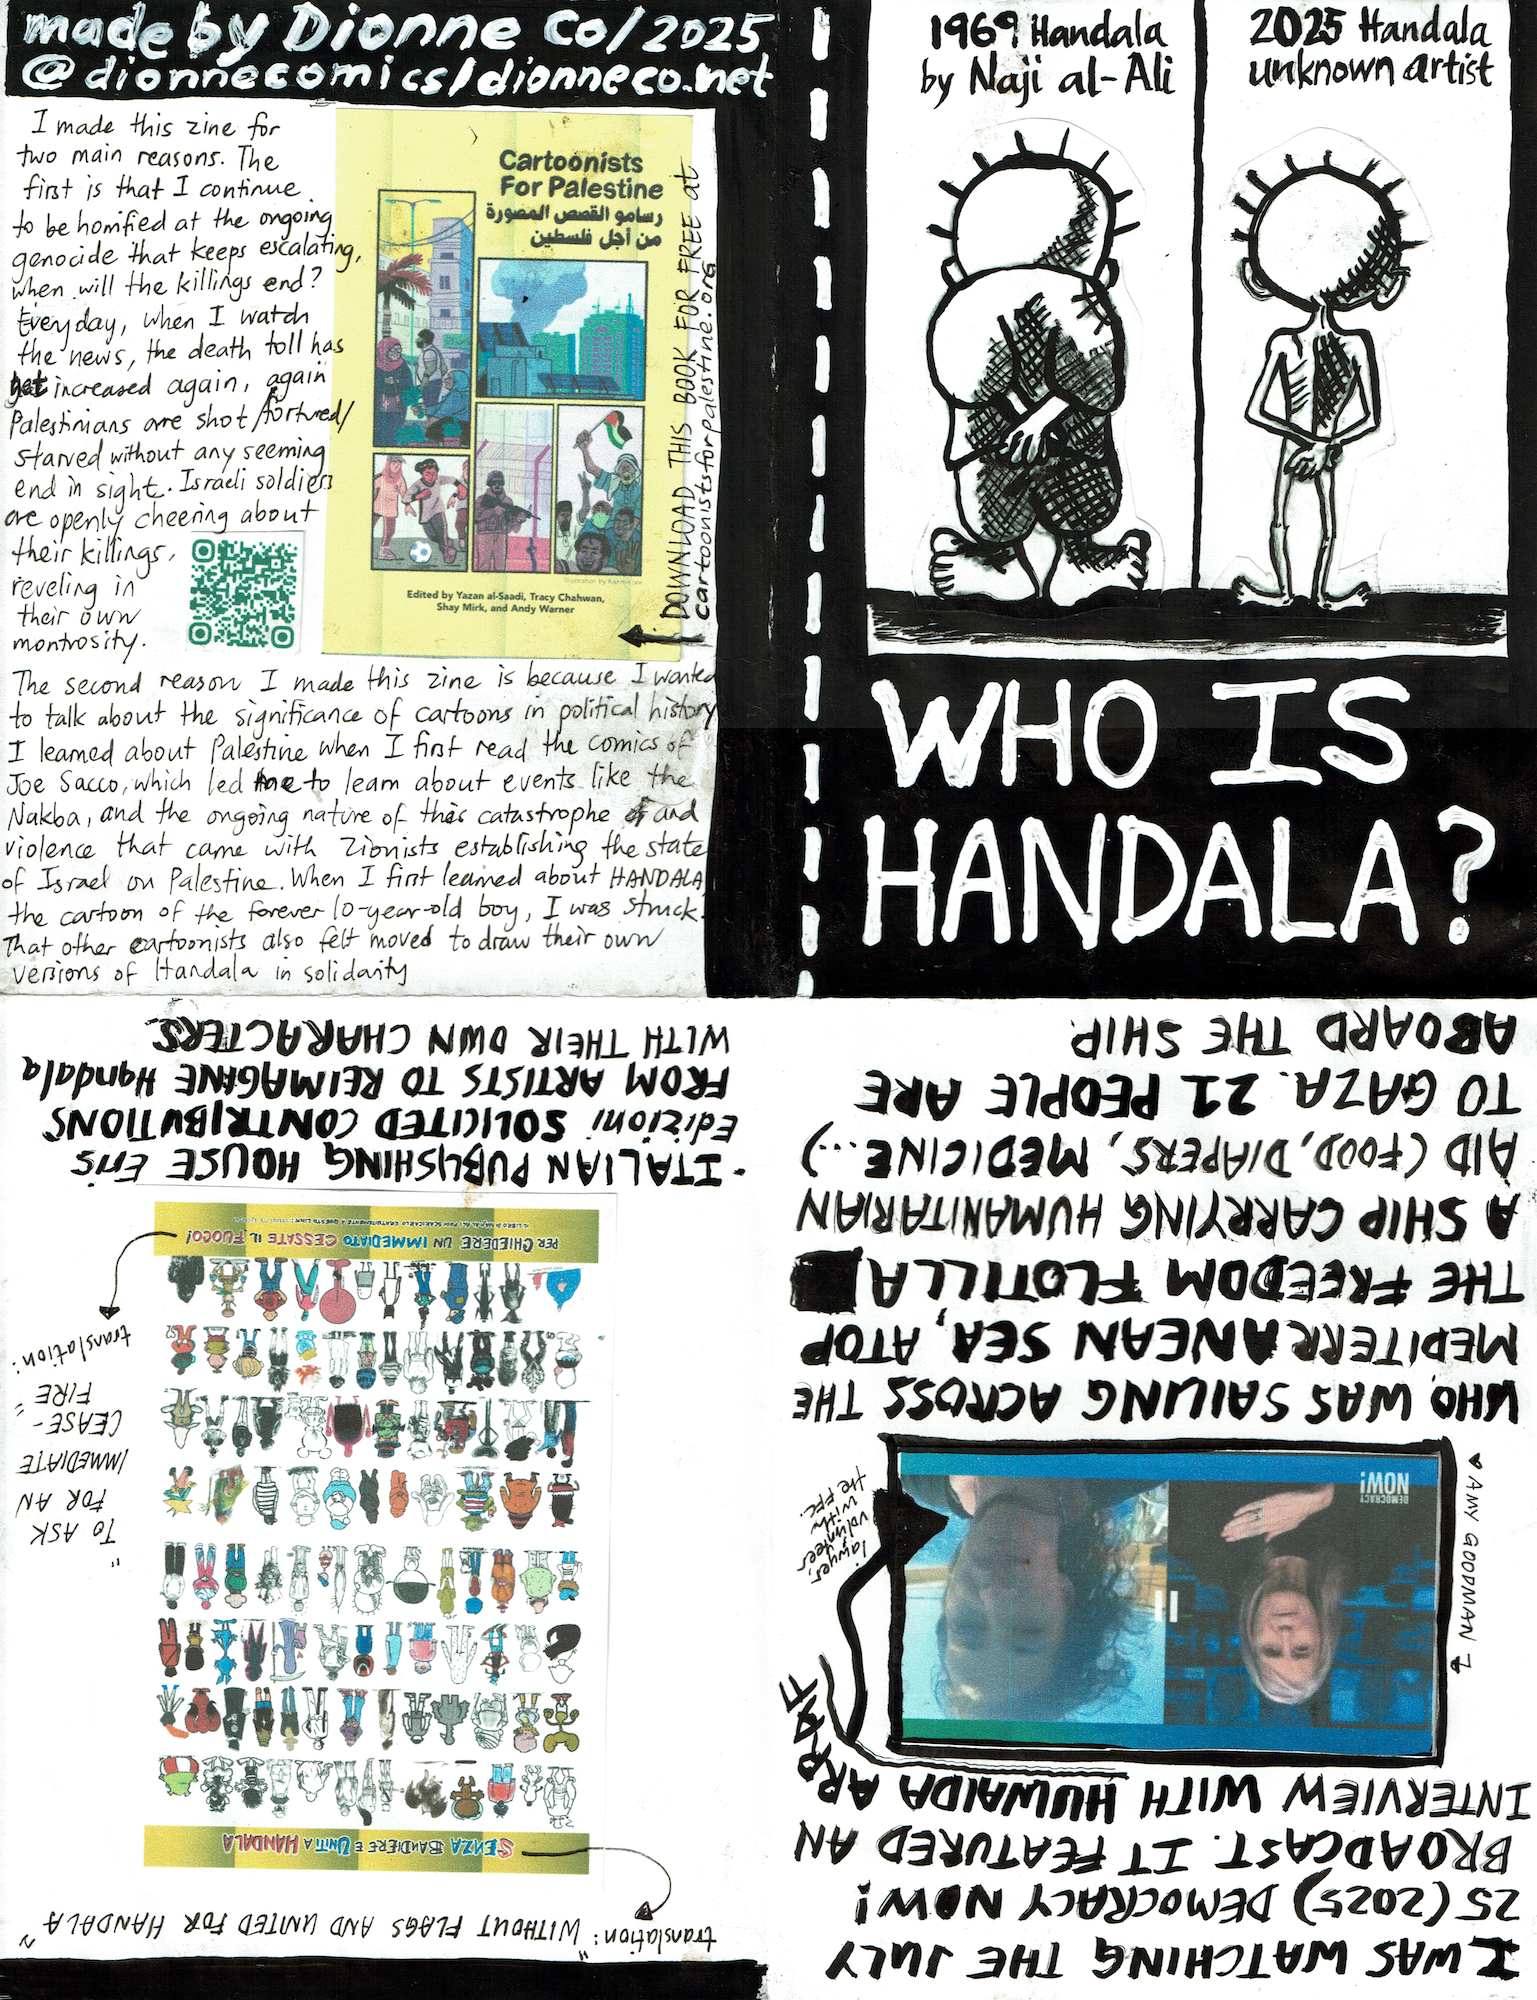 made by Dionne Co/2025
@dionnecomics/dionneco.net
I made this zine for
two main reasons. The
first is that I continue
to be horrified at the ongoing
genocide that keeps escalating,
when will the killings end?
Everyday, when I watch
the news, the death toll has
yet increased again, again
Palestinians are shot/tortured/
starved without any seeming
end in sight. Israeli soldiers
are openly cheering about
their killings,
reveling in
their own
montrosity.
Cartoonists
For Palestine
رسامو القصص المصورة
من أجل فلسطين
Illustration by
Edited by Yazan al-Saadi, Tracy Chahwan,
Shay Mirk, and Andy Warner
DOWNLOAD THIS BOOK FOR FREE at
cartoonistsforpalestine.org
The second reason I made this zine is because I wanted
to talk about the significance of cartoons in political history
I learned about Palestine when I first read the comics of
Joe Sacco, which led me to learn about events like the
Nakba, and the ongoing nature of this catastrophe and
violence that came with Zionists establishing the state
of Israel on Palestine. When I first learned about HANDALA
the cartoon of the forever 10-year-old boy, I was struck.
That other cartoonists also felt moved to draw their own
versions of Handala in solidarity
1969 Handala
by Naji al-Ali
2025 Handala
unknown artist
WHO IS
HANDALA?
I WAS WATCHING THE JULY
25 (2025) DEMOCRACY NOW!
BROADCAST. IT FEATURED AN
INTERVIEW WITH HUWAIDA ARRAF
AMY GOODMAN
DEMOCRACY
NOW!
lawyer,
volunteer
with
the FFC.
WHO WAS SAILING ACROSS THE
MEDITERRANEAN SEA, ATOP
THE FREEDOM FLOTILLA
A SHIP CARRYING HUMANITARIAN
AID (FOOD, DIAPERS, MEDICINE...)
TO GAZA. 21 PEOPLE ARE
ABOARD THE SHIP.
translation: "WITHOUT FLAGS AND UNITED FOR HANDALA"
SENZA BANDIERE E UNITI A HANDALA
PER CHIEDERE UN IMMEDIATO CESSATE IL FUOCO!
translation:
"TO ASK
FOR AN
IMMEDIATE
CEASE-
FIRE"
- ITALIAN PUBLISHING HOUSE Eris
Edizioni SOLICITED CONTRIBUTIONS
FROM ARTISTS TO REIMAGINE Handala
WITH THEIR OWN CHARACTERS.